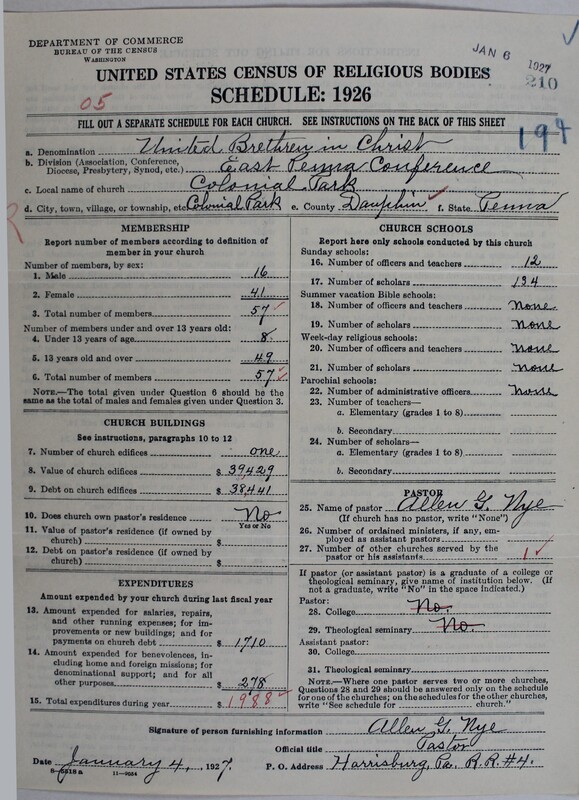 DEPARTMENT OF COMMERCE
BUREAU OF THE CENSUS
WASHINGTON
JAN 6 1927
210
UNITED STATES CENSUS OF RELIGIOUS BODIES
05
SCHEDULE: 1926
FILL OUT A SEPARATE SCHEDULE FOR EACH CHURCH. SEE INSTRUCTIONS ON THE BACK OF THIS SHEET
194
a. Denomination United Brethren in Christ
b. Division (Association, Conference, Diocese, Presbytery, Synod, etc.) East Penna Conference
c. Local name of church Colonial Park
d. City, town, village, or township, etc Colonial Park e. County Dauphin f. State Penna
MEMBERSHIP
Report number of members according to definition of member in your church
Number of members, by sex:
1. Male 16
2. Female 41
3. Total number of members 57
Number of members under and over 13 years old:
4. Under 13 years of age 8
5. 13 years old and over 49
6. Total number of members 57
NOTE.—The total given under Question 6 should be the same as the total of males and females given under Question 3.
CHURCH BUILDINGS
See instructions, paragraphs 10 to 12
7. Number of church edifices one
8. Value of church edifices $ 39,429
9. Debt on church edifices $ 38,441
10. Does church own pastor's residence No
Yes or No
11. Value of pastor's residence (if owned by church) $
12. Debt on pastor's residence (if owned by church) $
EXPENDITURES
Amount expended by your church during last fiscal year
13. Amount expended for salaries, repairs, and other running expenses; for improvements or new buildings; and for payments on church debt $ 1710
14. Amount expended for benevolences, including home and foreign missions; for denominational support; and for all other purposes $ 278
15. Total expenditures during year $ 1988
CHURCH SCHOOLS
Report here only schools conducted by this church
Sunday schools:
16. Number of officers and teachers 12
17. Number of scholars 134
Summer vacation Bible schools:
18. Number of officers and teachers None
19. Number of scholars None
Week-day religious schools:
20. Number of officers and teachers None
21. Number of scholars None
Parochial schools:
22. Number of administrative officers None
23. Number of teachers—
a. Elementary (grades 1 to 8)
b. Secondary
24. Number of scholars—
a. Elementary (grades 1 to 8)
b. Secondary
PASTOR
25. Name of pastor Allen G. Nye
(If church has no pastor, write "None")
26. Number of ordained ministers, if any, employed as assistant pastors
27. Number of other churches served by the pastor or his assistants 1
If pastor (or assistant pastor) is a graduate of a college or theological seminary, give name of institution below. (If not a graduate, write "No" in the space indicated.)
Pastor:
28. College No.
29. Theological seminary No.
Assistant pastor:
30. College
31. Theological seminary
NOTE.—Where one pastor serves two or more churches, Questions 28 and 29 should be answered only on the schedule for one of the churches; on the schedules for the other churches, write "See schedule for church."
Signature of person furnishing information Allen G. Nye
Official title Pastor
Date January 4, 1927. P. O. Address Harrisburg, Pa. R.R.#4.